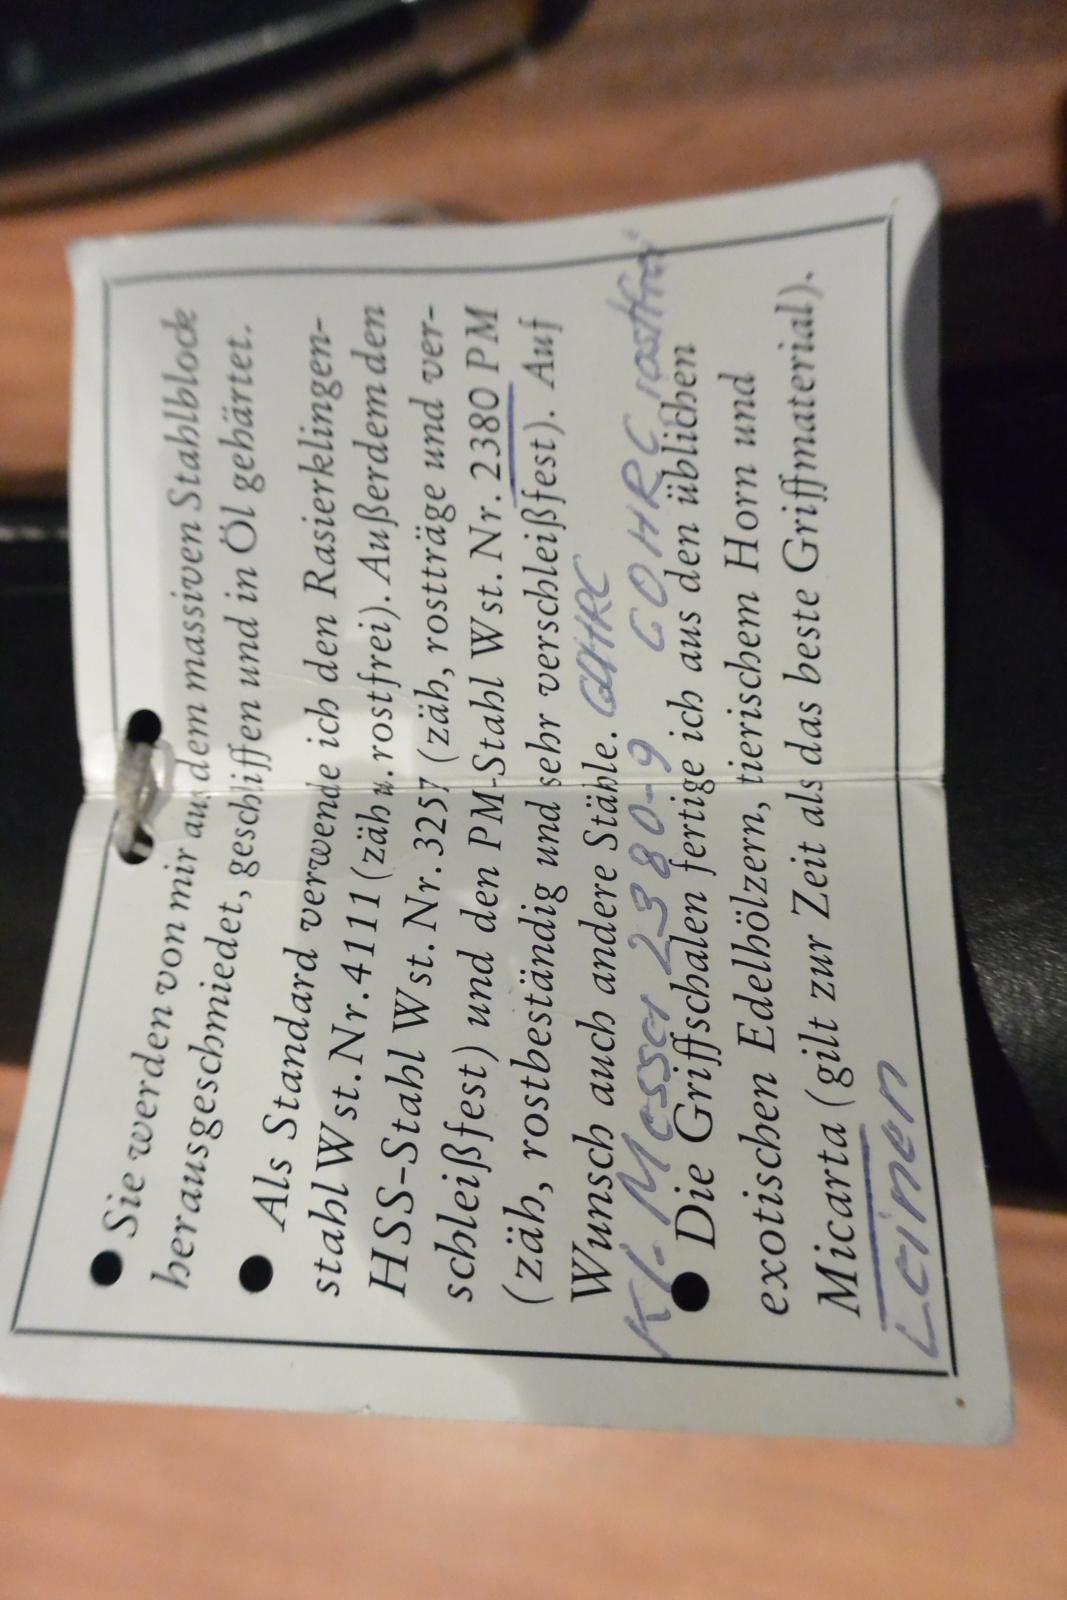 ● Sie werden von mir aus dem massiven Stahlblock
herausgeschmiedet, geschliffen und in Öl gehärtet.
● Als Standard verwende ich den Rasierklingen-
stahl Wst. Nr. 4111 (zäh u. rostfrei). Außerdem den
HSS-Stahl Wst. Nr. 3257 (zäh, rostträge und ver-
schleißfest) und den PM-Stahl Wst. Nr. 2380 PM
(zäh, rostbeständig und sehr verschleißfest). Auf
Wunsch auch andere Stähle.
Kl. Messer 2380-9 60 HRC rostfrei
● Die Griffschalen fertige ich aus den üblichen
exotischen Edelhölzern, tierischem Horn und
Micarta (gilt zur Zeit als das beste Griffmaterial).
Leinen